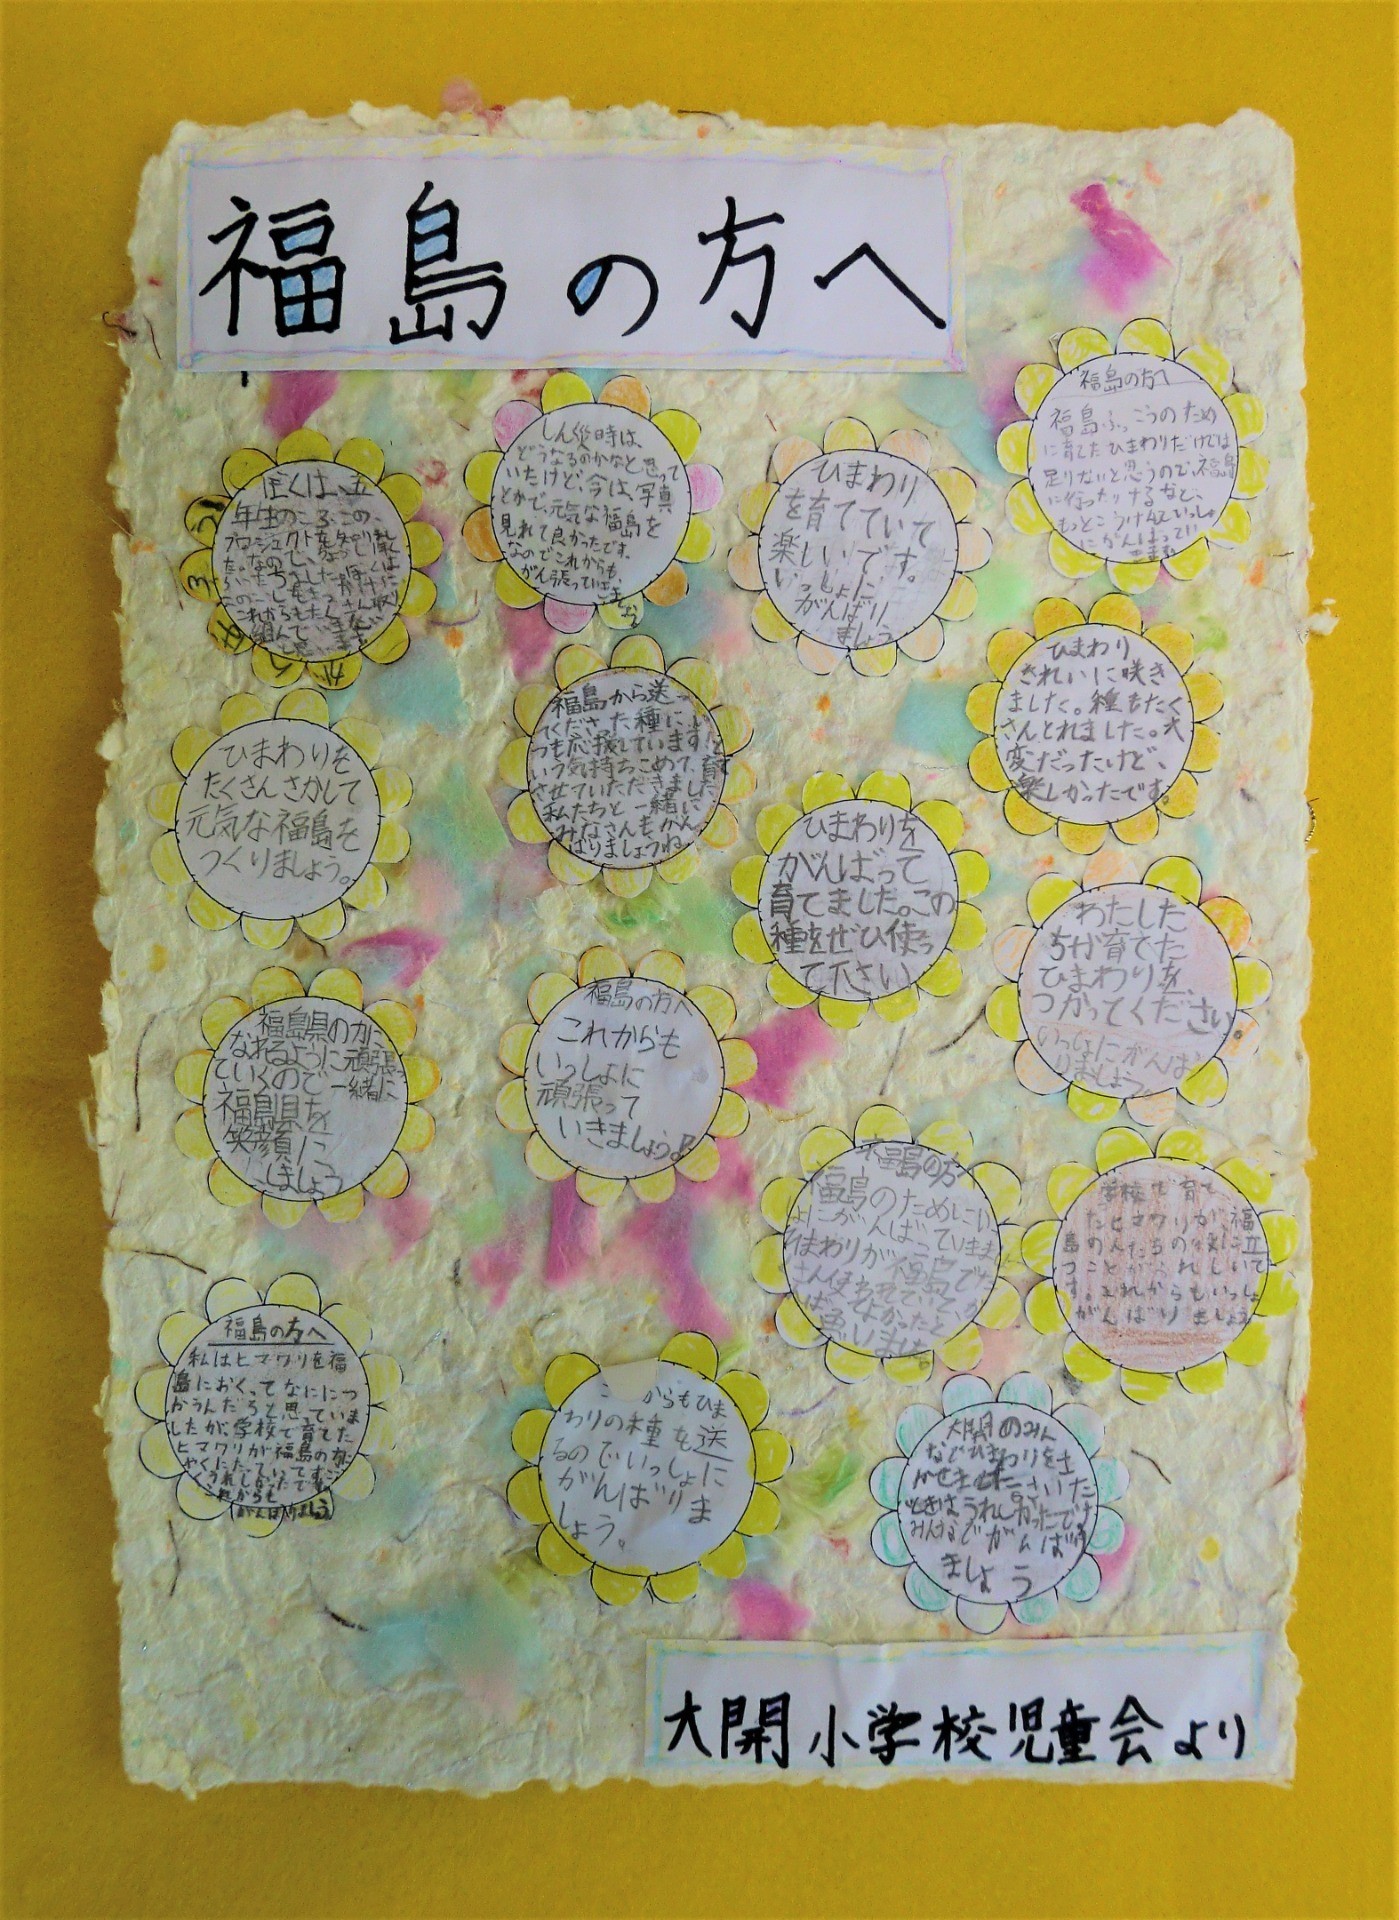 福島の方へ
福島の方へ
福島ふっこうのため
に育てたひまわりだけでは
足りないと思うので、福島
に行ったりするなど、
しん災時は、
どうなるのかなと思って
いたけど、今は、写真
とかで、元気な福島を
見れて良かったです。
なのでこれからも、
がん張っていきましょう
ひまわり
を育てていて
楽しいです。
いっしょに
がんばり
ましょう
ぼくは、五
年生のころこの
プロジェクトを
ひまわり
きれいに咲き
ました。種もたく
さんとれました。大
変だったけど、
楽しかったです。
福島から送っ
てくださった種に
つも応援しています
いう気持ちこめて
させていただきました
私たちと一緒に
みなさんもがん
ばりましょうね
ひまわりを
たくさんさかして
元気な福島を
つくりましょう。
ひまわりを
がんばって
育てました。この
種をぜひ使っ
て下さい
わたした
ちが育てた
ひまわりを、
つかってください。
いっしょにがんば
りましょう。
福島県の力に
なれるように頑張っ
ていくので一緒に
福島県を
笑顔に
しましょう
福島の方へ
これからも
いっしょに
頑張って
いきましょう!
福島の方へ
福島のためにい
ひまわりが福島でた
学校で育て
たヒマワリが、福
島の人たちの役に立て
福島の方へ
私はヒマワリを福
島におくってなににつ
かうんだろと思っていま
したが、学校で育てた
ヒマワリが福島の方に
やくにたてていて
うれしかったです。
これからも
がんばりましょう
からもひま
わりの種を送
るのでいっしょに
がんばりま
しょう。
大開のみん
なでひまわりをさ
かせました。さいた
ときはうれしかったです
みんなでがんばり
ましょう
大開小学校児童会より